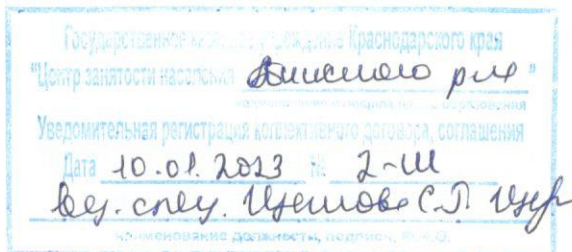 Государственное казенное учреждение Краснодарского края
"Центр занятости населения Динского р-на"
наименование муниципального образования
Уведомительная регистрация коллективного договора, соглашения
Дата 10.01.2023 № 2-Ш
Вед. спец.
наименование должности, подпись, Ф.И.О.